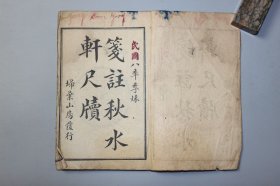 民國八年季緣
箋註秋水
軒尺牘
掃葉山房發行